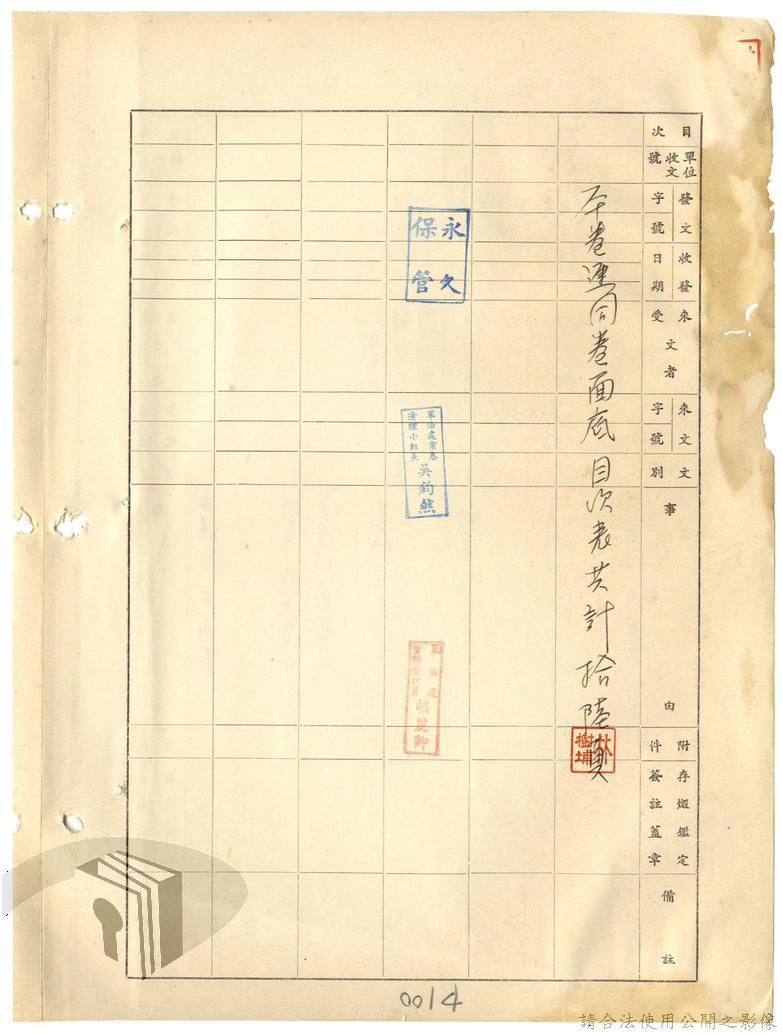 目次
單位收文號
發文字號
收發日期
來文受者
來文字號
文別
事由
附件
存燬鑑定簽註蓋章
備註
本卷連同卷面底目次表共計拾陸頁
林樹埔
永久保管
軍法處案卷清理小組長 吳鈞然
軍法處資料管理員 胡麗卿
0014
請合法使用公開之影像